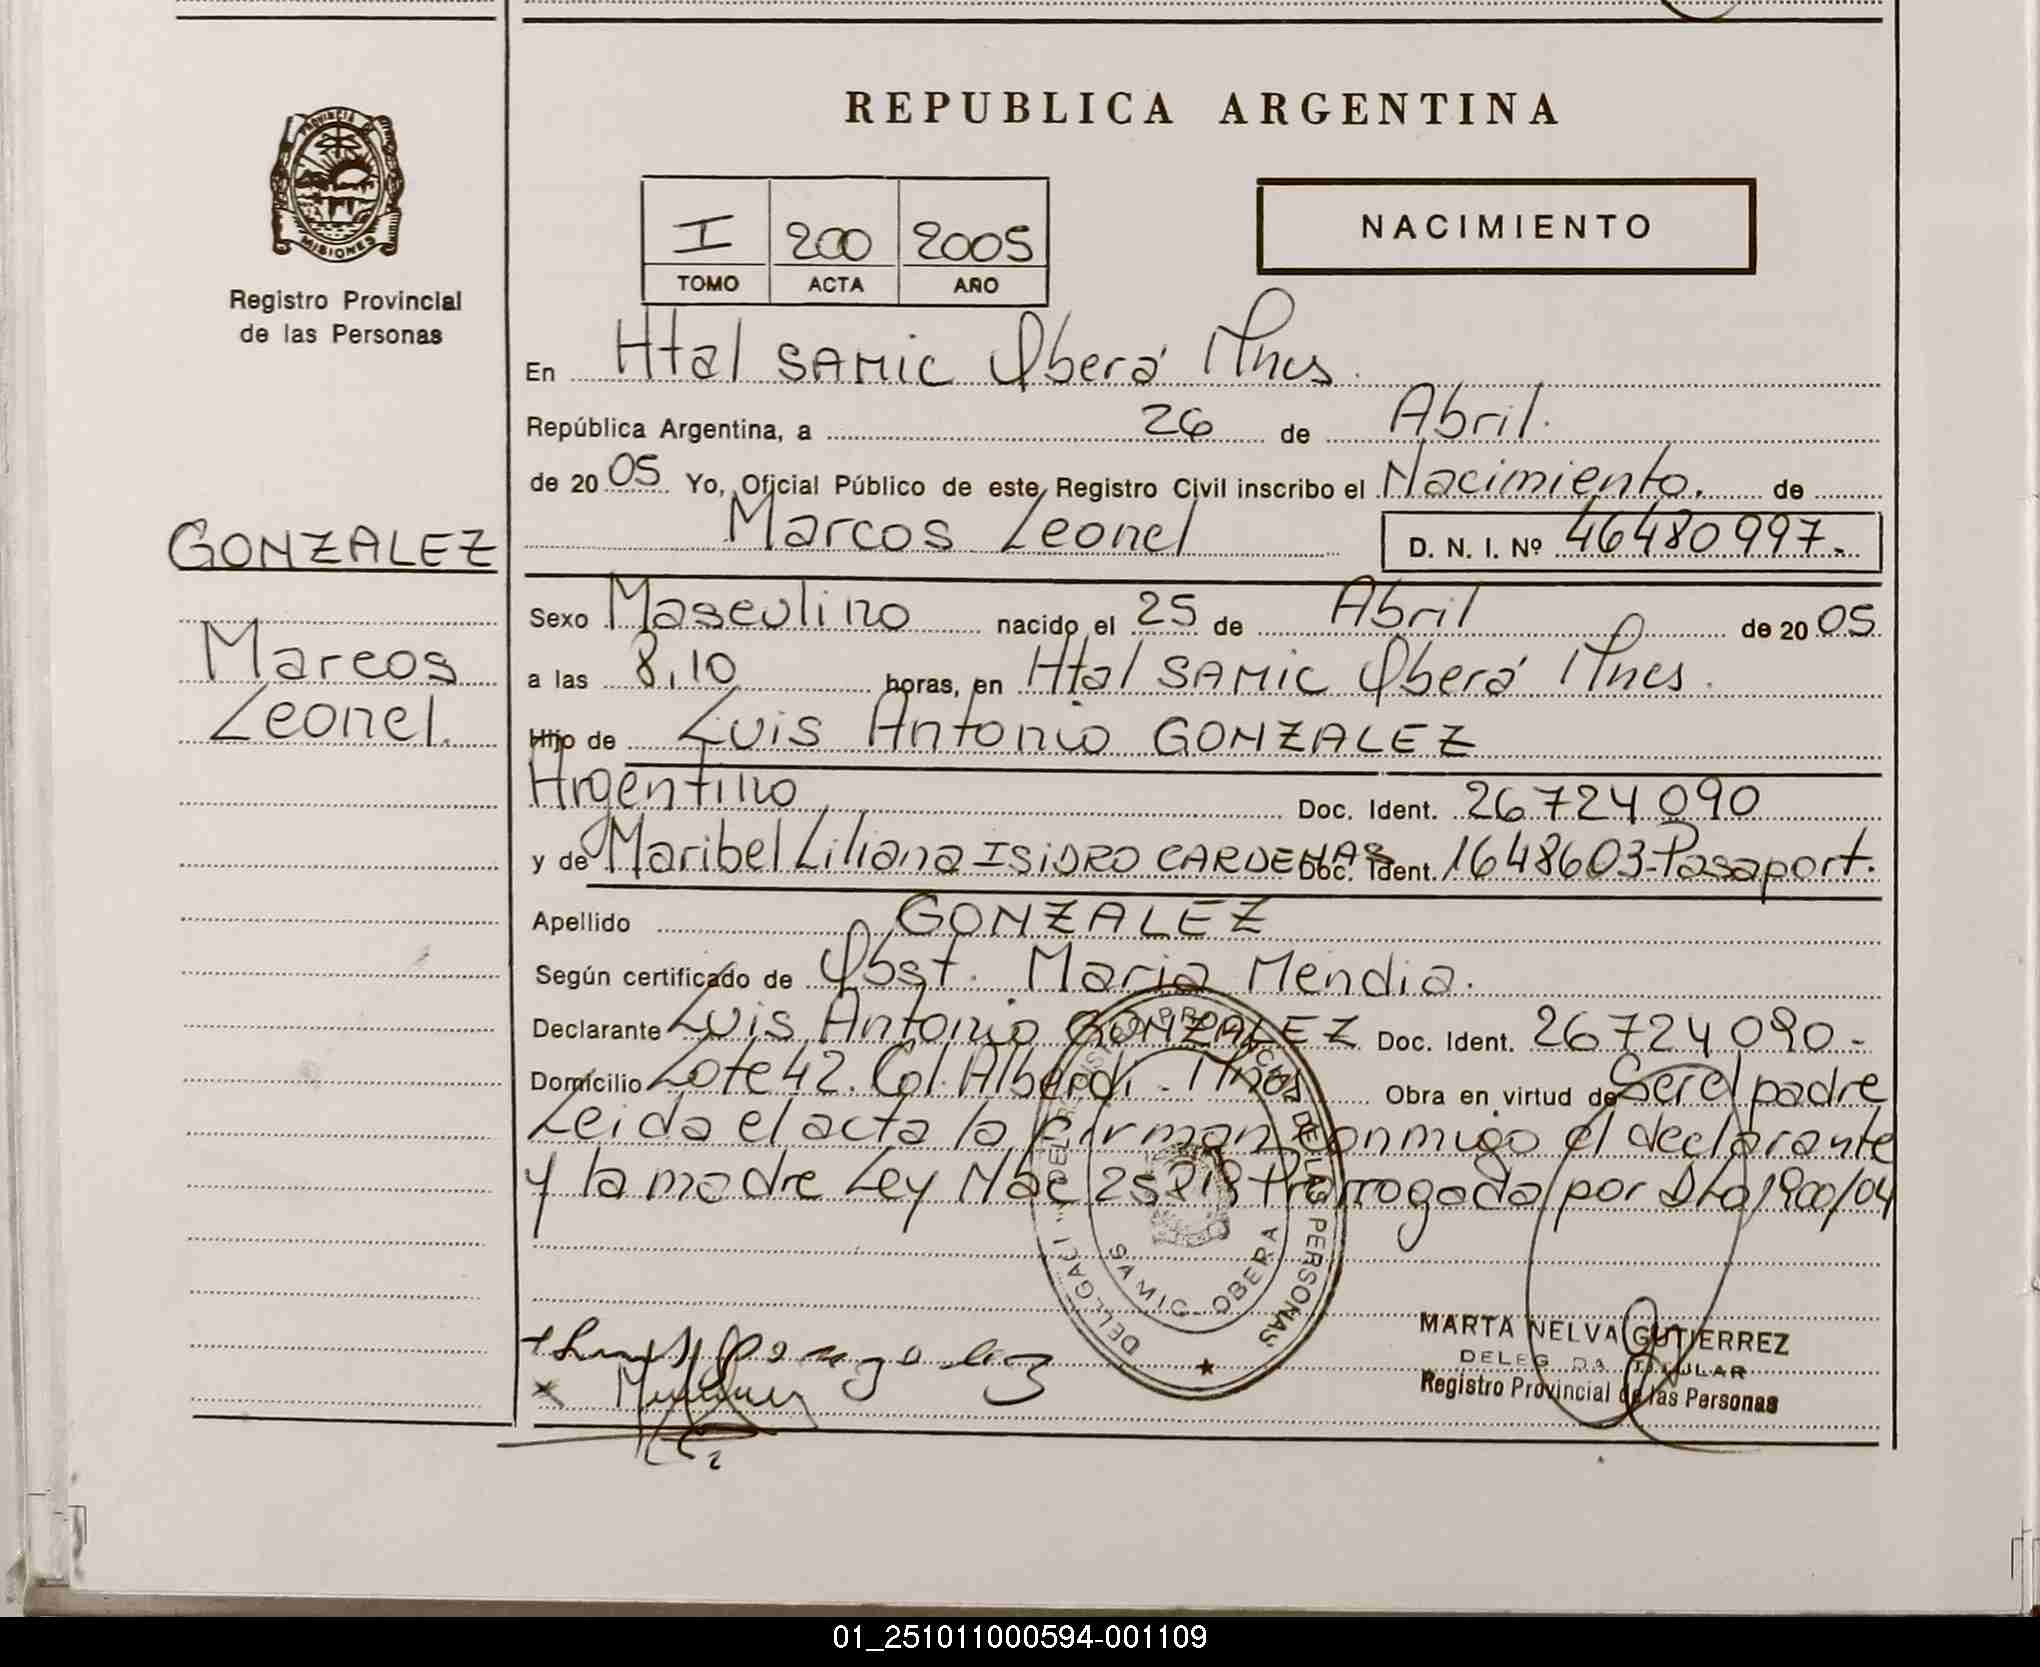 REPUBLICA ARGENTINA
PROVINCIA DE MISIONES
Registro Provincial
de las Personas
I 200 2005
TOMO ACTA AÑO
NACIMIENTO
En Htal SAMIC Oberá Mnes.
República Argentina, a 26 de Abril.
de 2005 Yo, Oficial Público de este Registro Civil inscribo el Nacimiento. de
Marcos Leonel D. N. I. Nº 46480997-
GONZALEZ
Marcos
Leonel.
Sexo Masculino nacido el 25 de Abril de 2005
a las 8,10 horas, en Htal SAMIC Oberá Mnes.
Hijo de Luis Antonio GONZALEZ
Argentino Doc. Ident. 26724090
y de Maribel Liliana ISIDRO CARDENAS Doc. Ident. 1648603-Pasaport.
Apellido GONZALEZ
Según certificado de Obst. Maria Mendia.
Declarante Luis Antonio GONZALEZ Doc. Ident. 26724090-
Domicilio Lote 42. Col. Alberdi - Mnes Obra en virtud de Ser el padre
Leida el acta la firman conmigo el declarante
y la madre Ley Nac 25819 Prorrogada por Dto 1900/04
REGISTRO PROVINCIAL DE LAS PERSONAS
SAMIC - OBERA
MARTA NELVA GUTIERREZ
DELEGADA TITULAR
Registro Provincial de las Personas
01_251011000594-001109